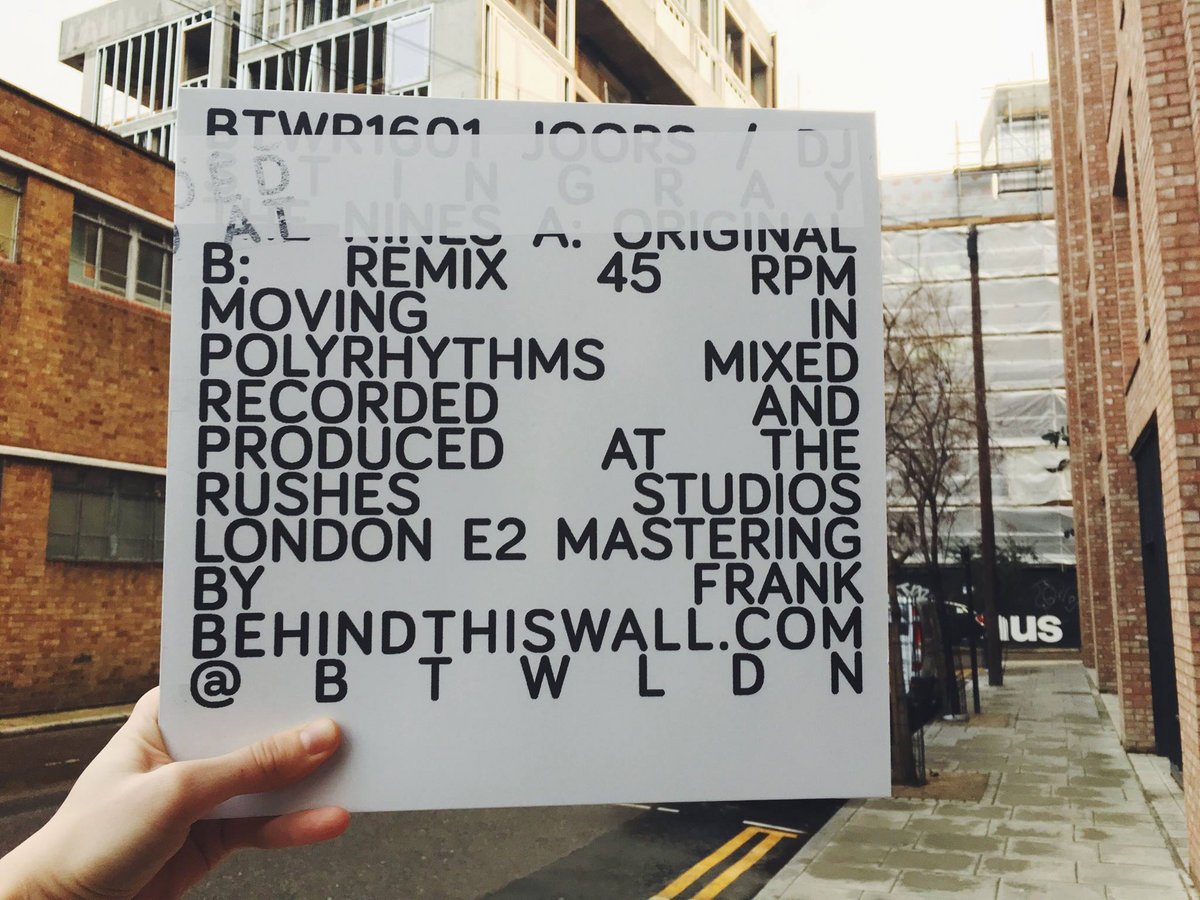 BTWR1601 JOORS / DJ
STINGRAY
THE NINES A: ORIGINAL
B: REMIX 45 RPM
MOVING IN
POLYRHYTHMS MIXED
RECORDED AND
PRODUCED AT THE
RUSHES STUDIOS
LONDON E2 MASTERING
BY FRANK
BEHINDTHISWALL.COM
@BTWLDN